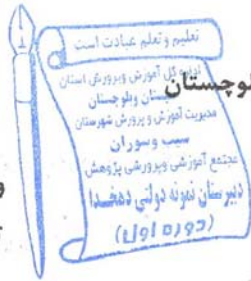 تعلیم و تعلم عبادت است
اداره کل آموزش وپرورش استان
سیستان وبلوچستان
لوچستان
مدیریت آموزش و پرورش شهرستان
سیب وسوران
مجتمع آموزشی وپرورشی پژوهش
دبیرستان نمونه دولتی دهخدا
و
(دوره اول)